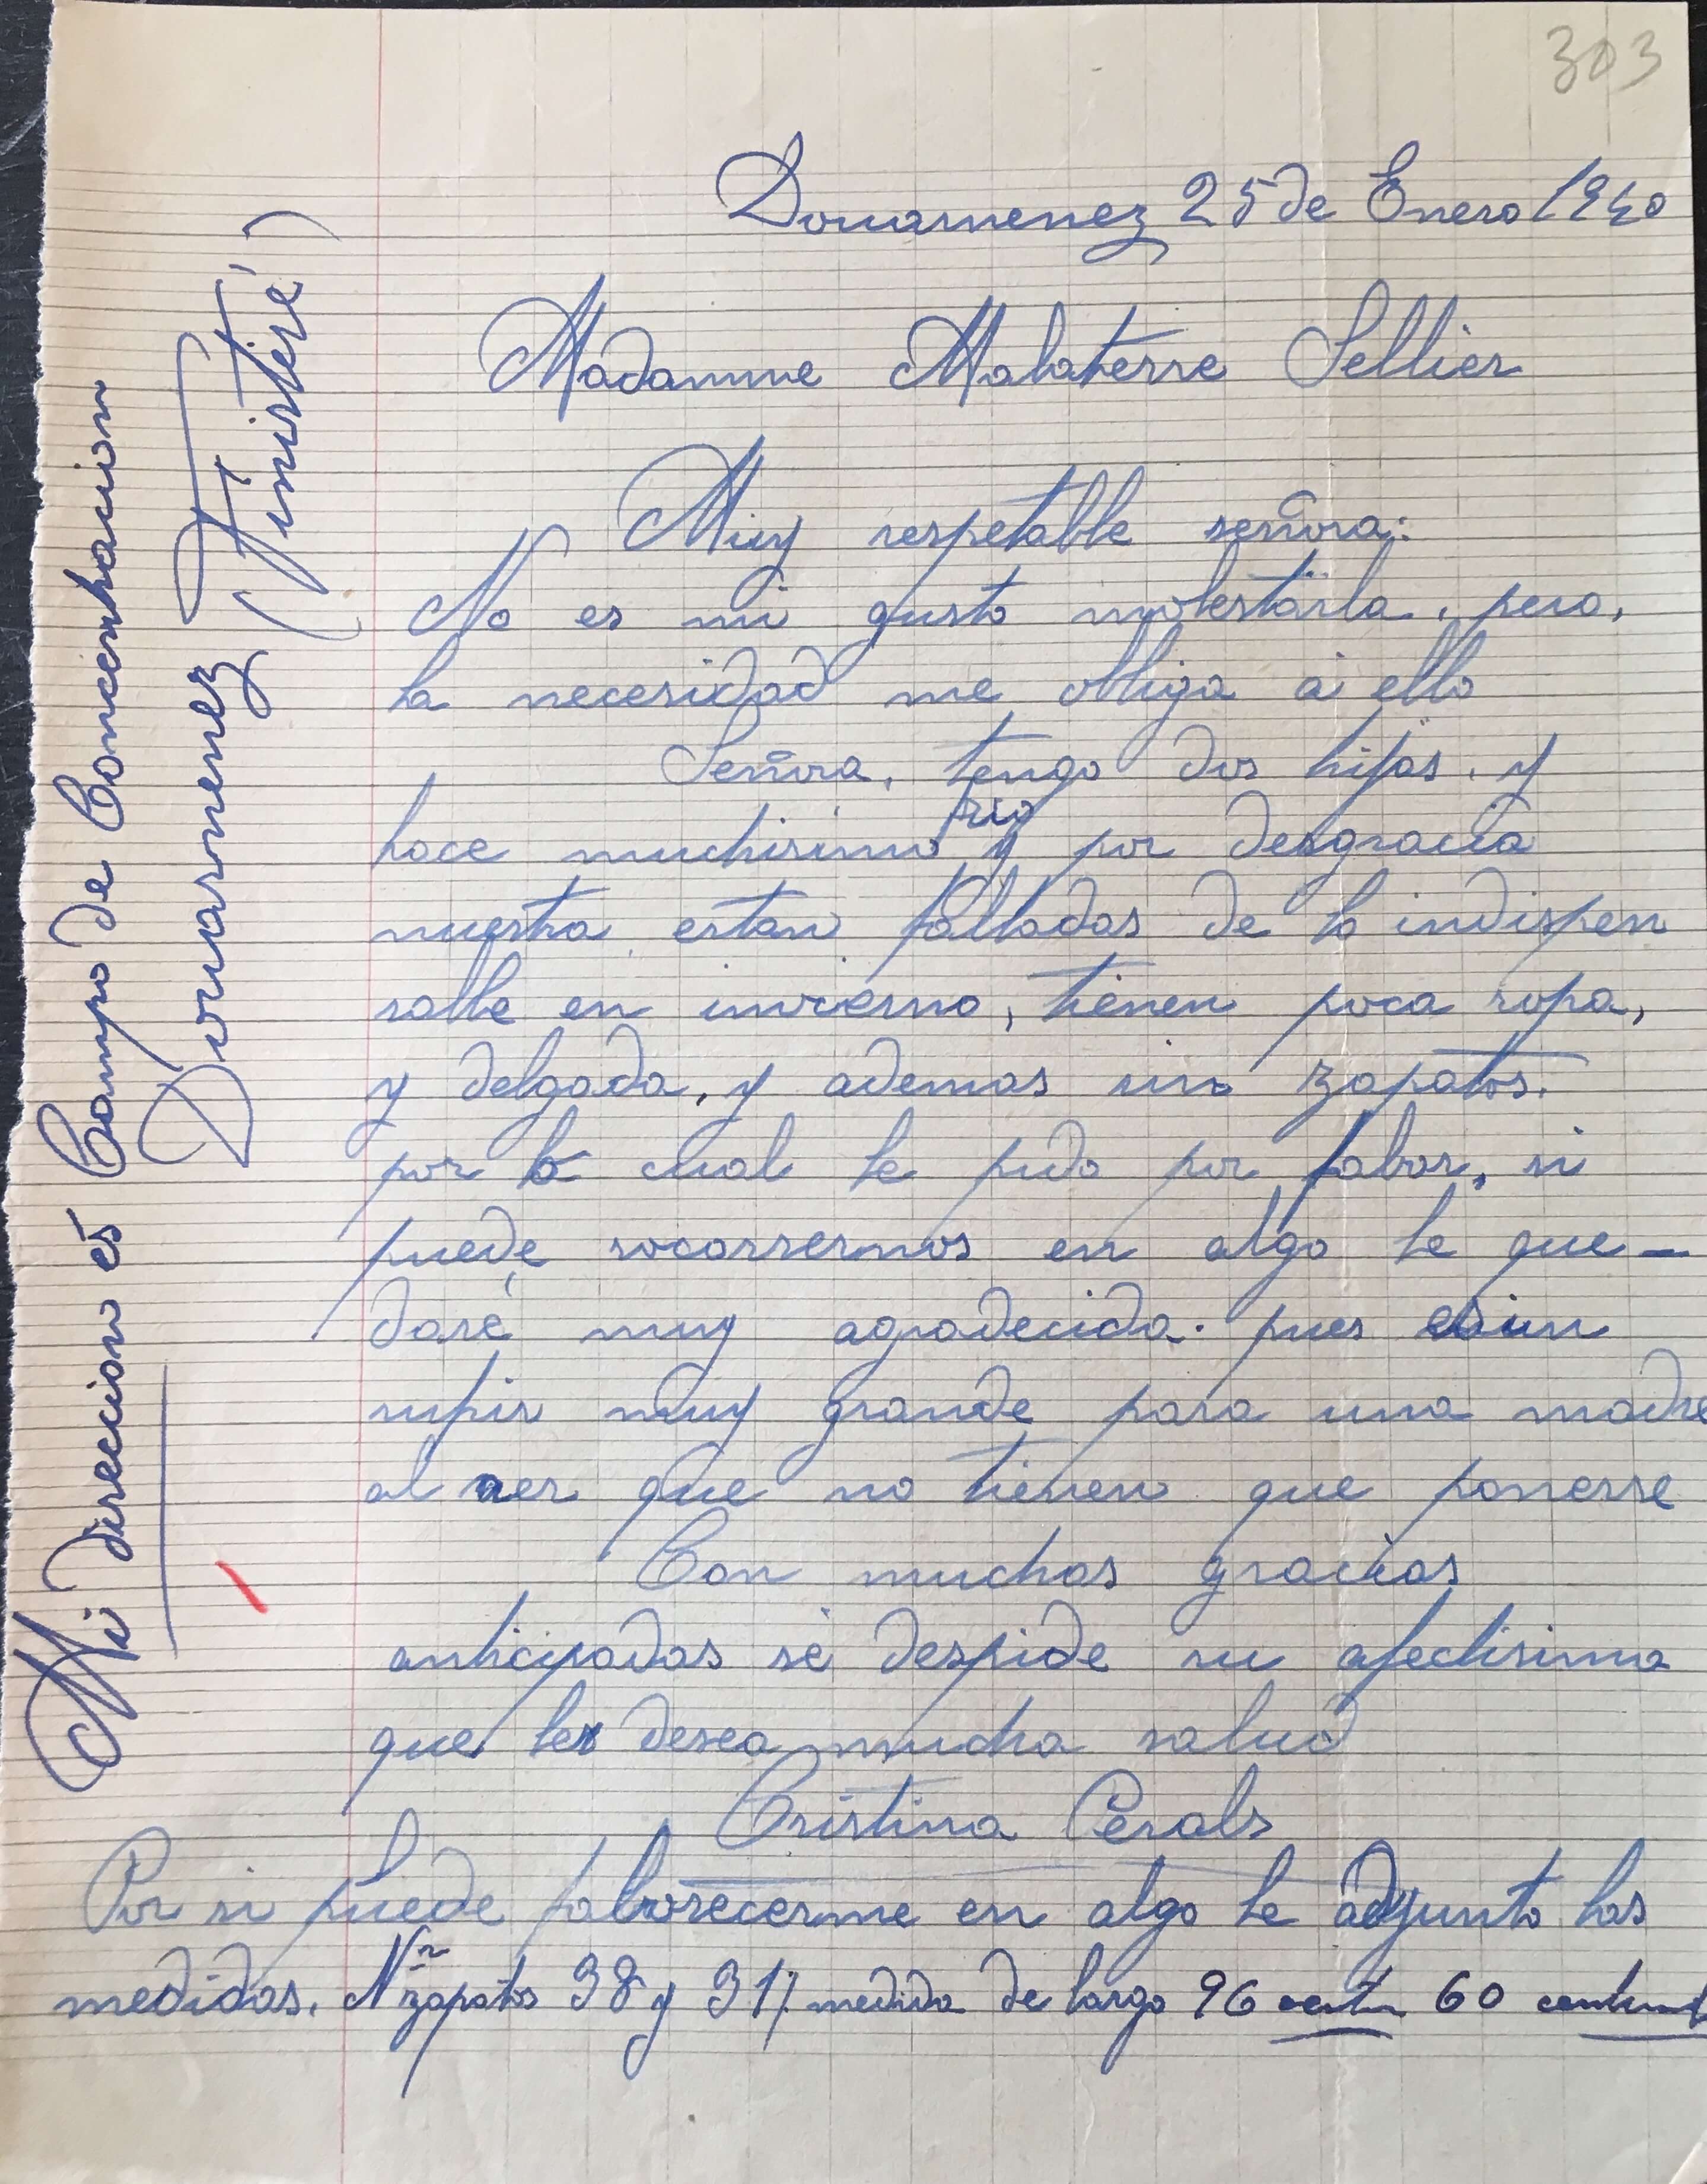 303
Douarnenez 25 de Enero 1940
Madamme Malaterre Sellier
Muy respetable señora:
No es mi gusto molestarla, pero,
la necesidad me obliga á ello
Señora, tengo dos hijas, y
hace muchisimo frio y por desgracia
nuestra estan faltadas de lo indispen
sable en invierno, tienen poca ropa,
y delgada, y ademas sin zapatos.
por lo cual le pido por fabor, si
puede socorrernos en algo le que-
daré muy agradecida. pues es un
sufrir muy grande para una madre
al ver que no tienen que ponerse
Con muchas gracias
anticipadas se despide su afectisima
que les desea mucha salud
Cristina Perals
Por si puede faborecerme en algo le adjunto las
medidas. Nr zapatos 38 y 31 medida de largo 96 cent 60
Mi direccion es Campo de Concentracion
Douarnenez (Finisteré)